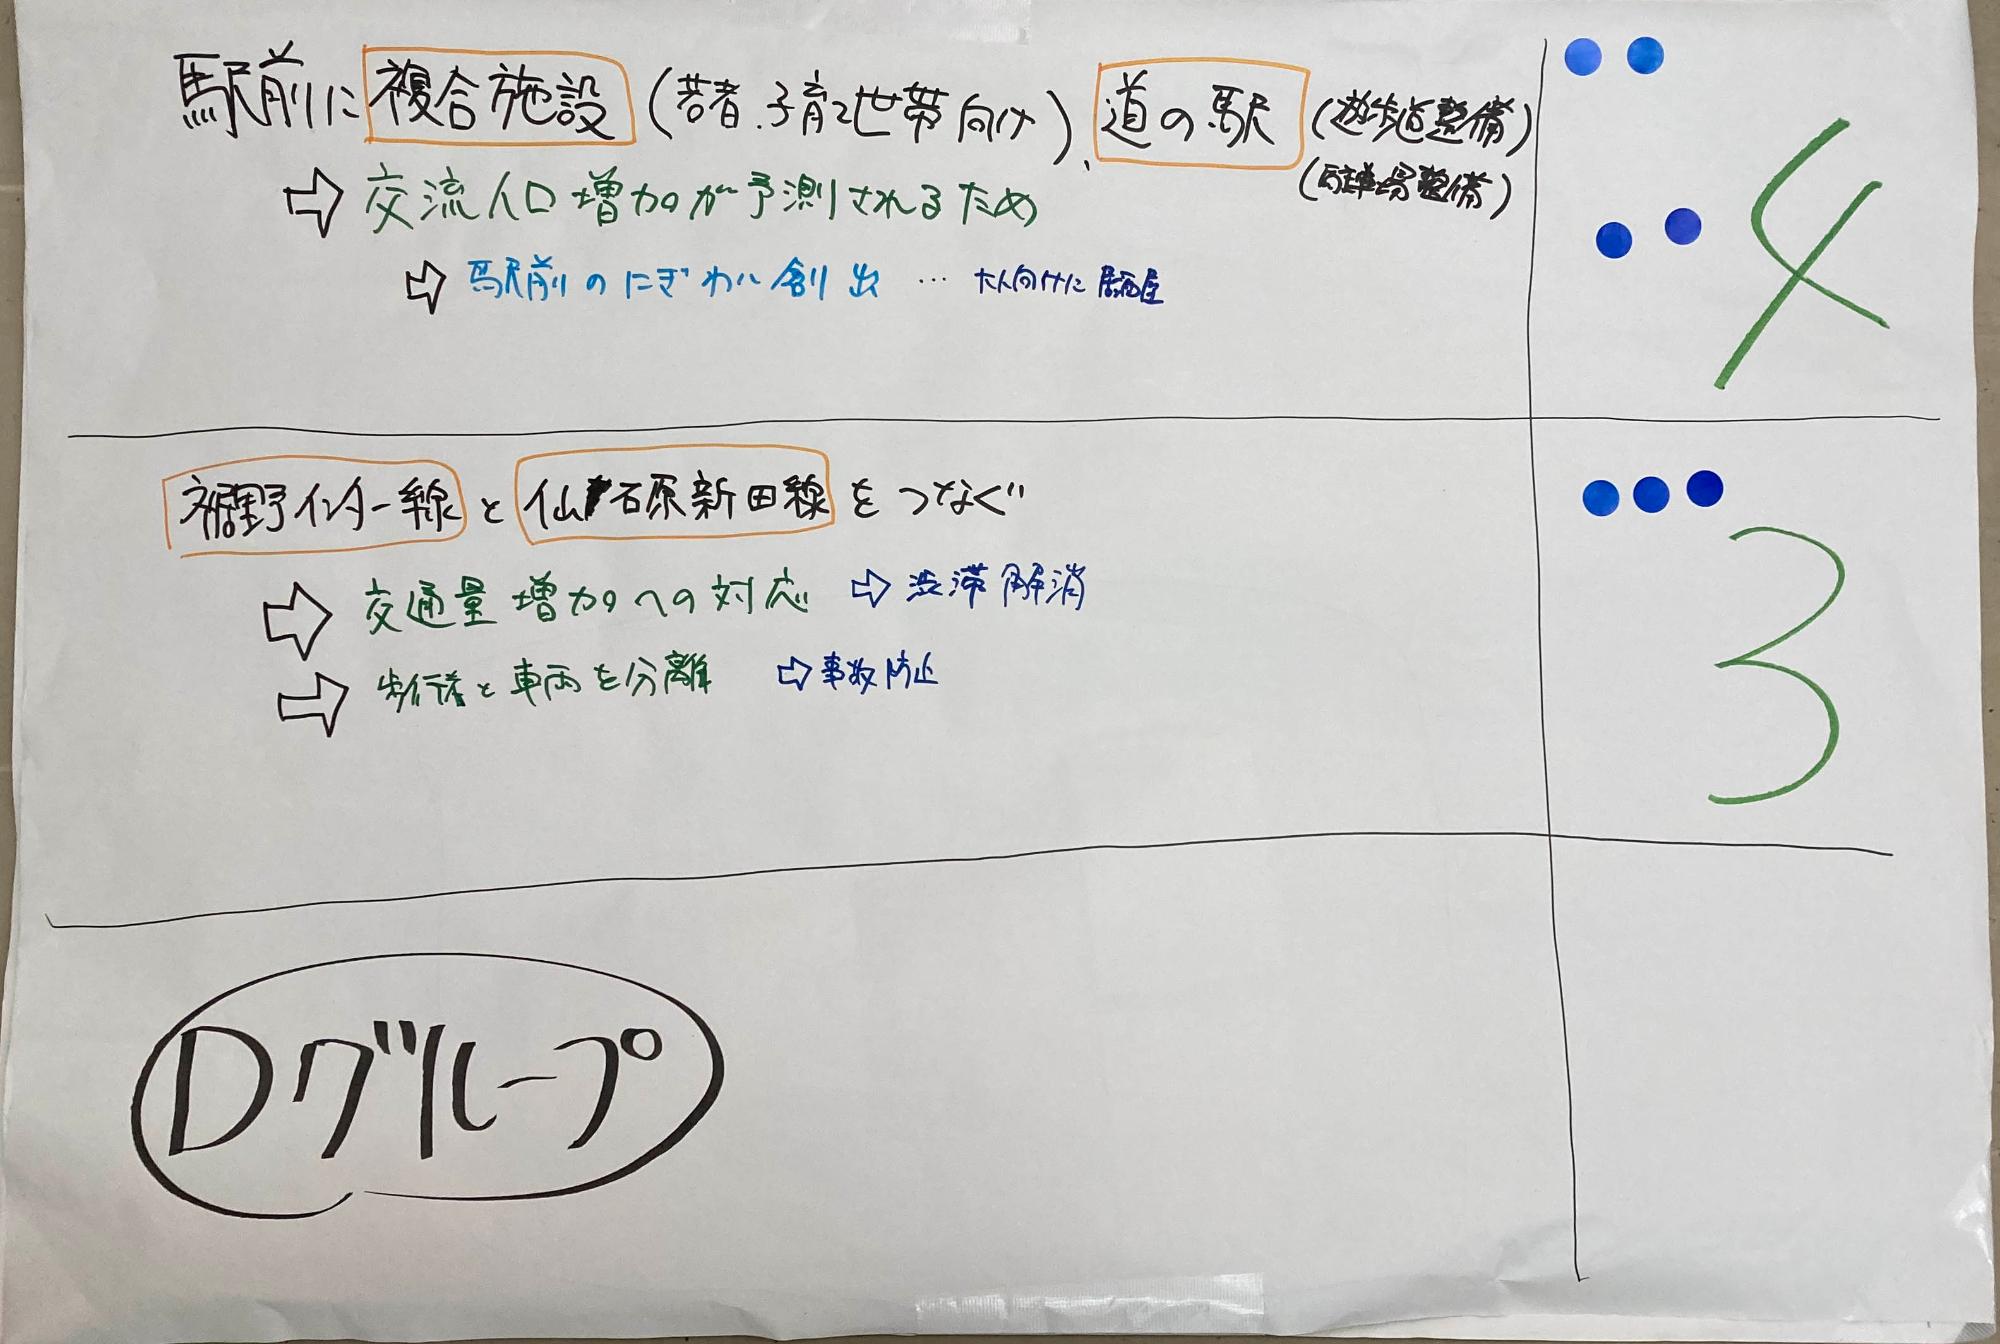 駅前に複合施設(若者.子育て世帯向け)、道の駅(遊歩道整備)
(駐車場整備)
⇨交流人口増加が予測されるため
⇨駅前のにぎわい創出 … 大人向けに居酒屋
4
裾野インター線と仙石原新田線をつなぐ
⇨交通量増加への対応 ⇨渋滞解消
⇨歩行者と車両を分離 ⇨事故防止
3
Dグループ